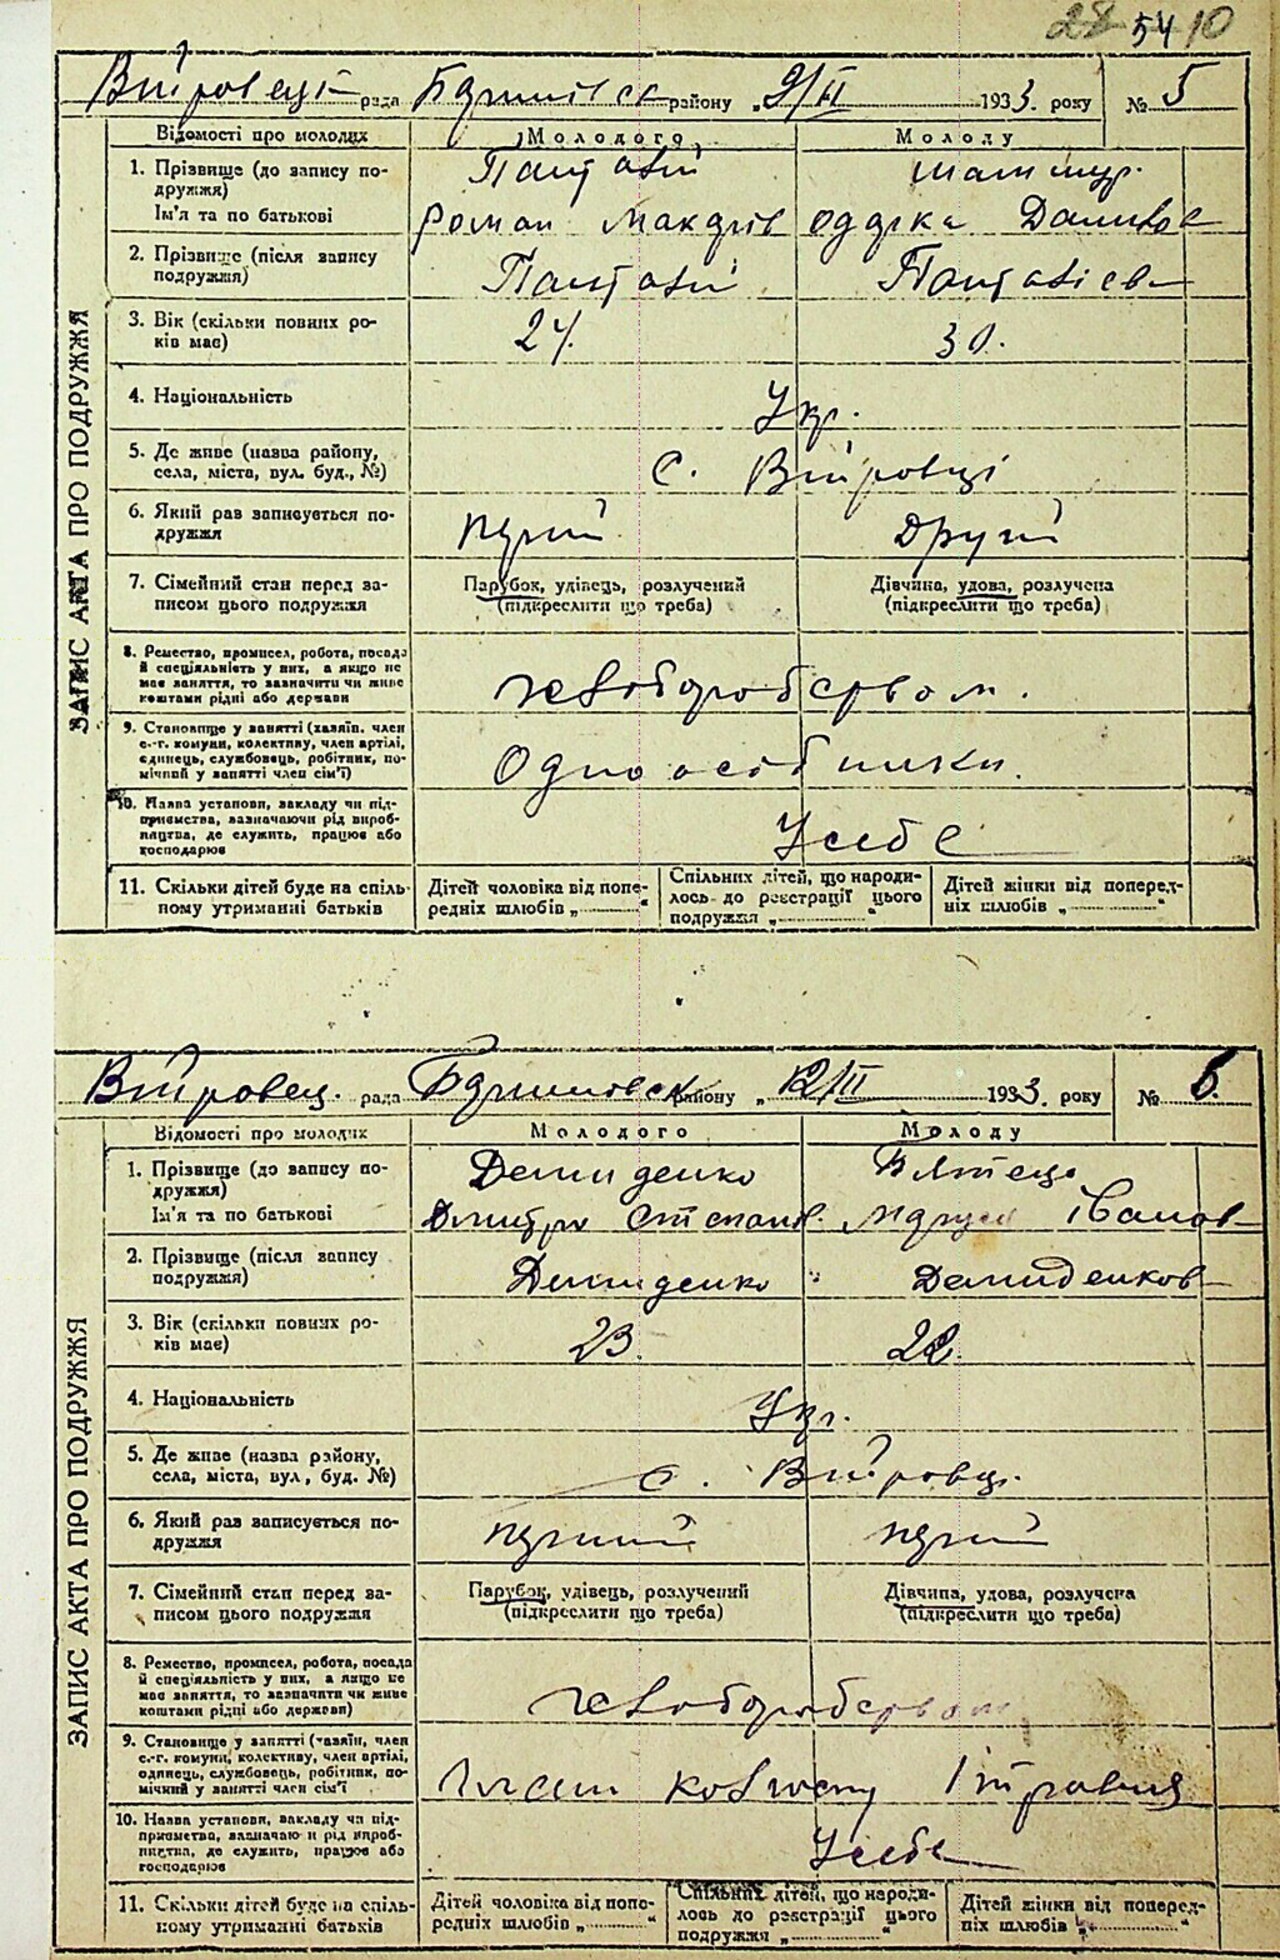 28 54 10
рада району 9/II 1933. року № 5
Відомості про молодих Молодого Молоду
1. Прізвище (до запису по-
дружжя)
Ім'я та по батькові
Роман Макарів Одарка Данилов
2. Прізвище (після запису
подружжя)
3. Вік (скільки повних ро-
ків має)
24. 30.
4. Національність
Укр.
5. Де живе (назва району,
села, міста, вул. буд., №)
с. Війтівці
6. Який раз записується по-
дружжя
перший Другий
7. Сімейний стан перед за-
писом цього подружжя
Парубок, удівець, розлучений
(підкреслити що треба)
Дівчина, удова, розлучена
(підкреслити що треба)
8. Ремество, промисел, робота, посада
й спеціяльність у них, а якщо не
має заняття, то зазначити чи живе
коштами рідні або держави
хліборобством.
9. Становище у занятті (хазяїн, член
с.-г. комуни, колективу, член артілі,
одинець, службовець, робітник, по-
мічний у занятті член сім'ї)
Одноосібники.
10. Назва установи, закладу чи під-
приємства, зазначаючи рід вироб-
ництва, де служить, працює або
господарює
У себе
11. Скільки дітей буде на спіль-
ному утриманні батьків
Дітей чоловіка від попе-
редніх шлюбів „ “
Спільних дітей, що народи-
лось до реєстрації цього
подружжя „ “
Дітей жінки від поперед-
ніх шлюбів „ “
ЗАПИС АКТА ПРО ПОДРУЖЖЯ
рада району „ 12/II 1933. року № 6.
Відомості про молодих Молодого Молоду
1. Прізвище (до запису по-
дружжя)
Ім'я та по батькові
Демиденко
Дмитро Степанів. Іванов
2. Прізвище (після запису
подружжя)
Демиденко Демиденков
3. Вік (скільки повних ро-
ків має)
23. 22.
4. Національність
Укр.
5. Де живе (назва району,
села, міста, вул., буд. №)
с.
6. Який раз записується по-
дружжя
перший перший
7. Сімейний стан перед за-
писом цього подружжя
Парубок, удівець, розлучений
(підкреслити що треба)
Дівчина, удова, розлучена
(підкреслити що треба)
8. Ремество, промисел, робота, посада
й спеціяльність у них, а якщо не
має заняття, то зазначити чи живе
коштами рідні або держави)
хліборобством
9. Становище у занятті (хазяїн, член
с.-г. комуни, колективу, член артілі,
одинець, службовець, робітник, по-
мічний у занятті член сім'ї
колгоспу
10. Назва установи, закладу чи під-
приємства, зазначаючи рід вироб-
ництва, де служить, працює або
господарює
У себе
11. Скільки дітей буде на спіль-
ному утриманні батьків
Дітей чоловіка від попе-
редніх шлюбів „ “
Спільних дітей, що народи-
лось до реєстрації цього
подружжя „ “
Дітей жінки від поперед-
ніх шлюбів „ “
ЗАПИС АКТА ПРО ПОДРУЖЖЯ